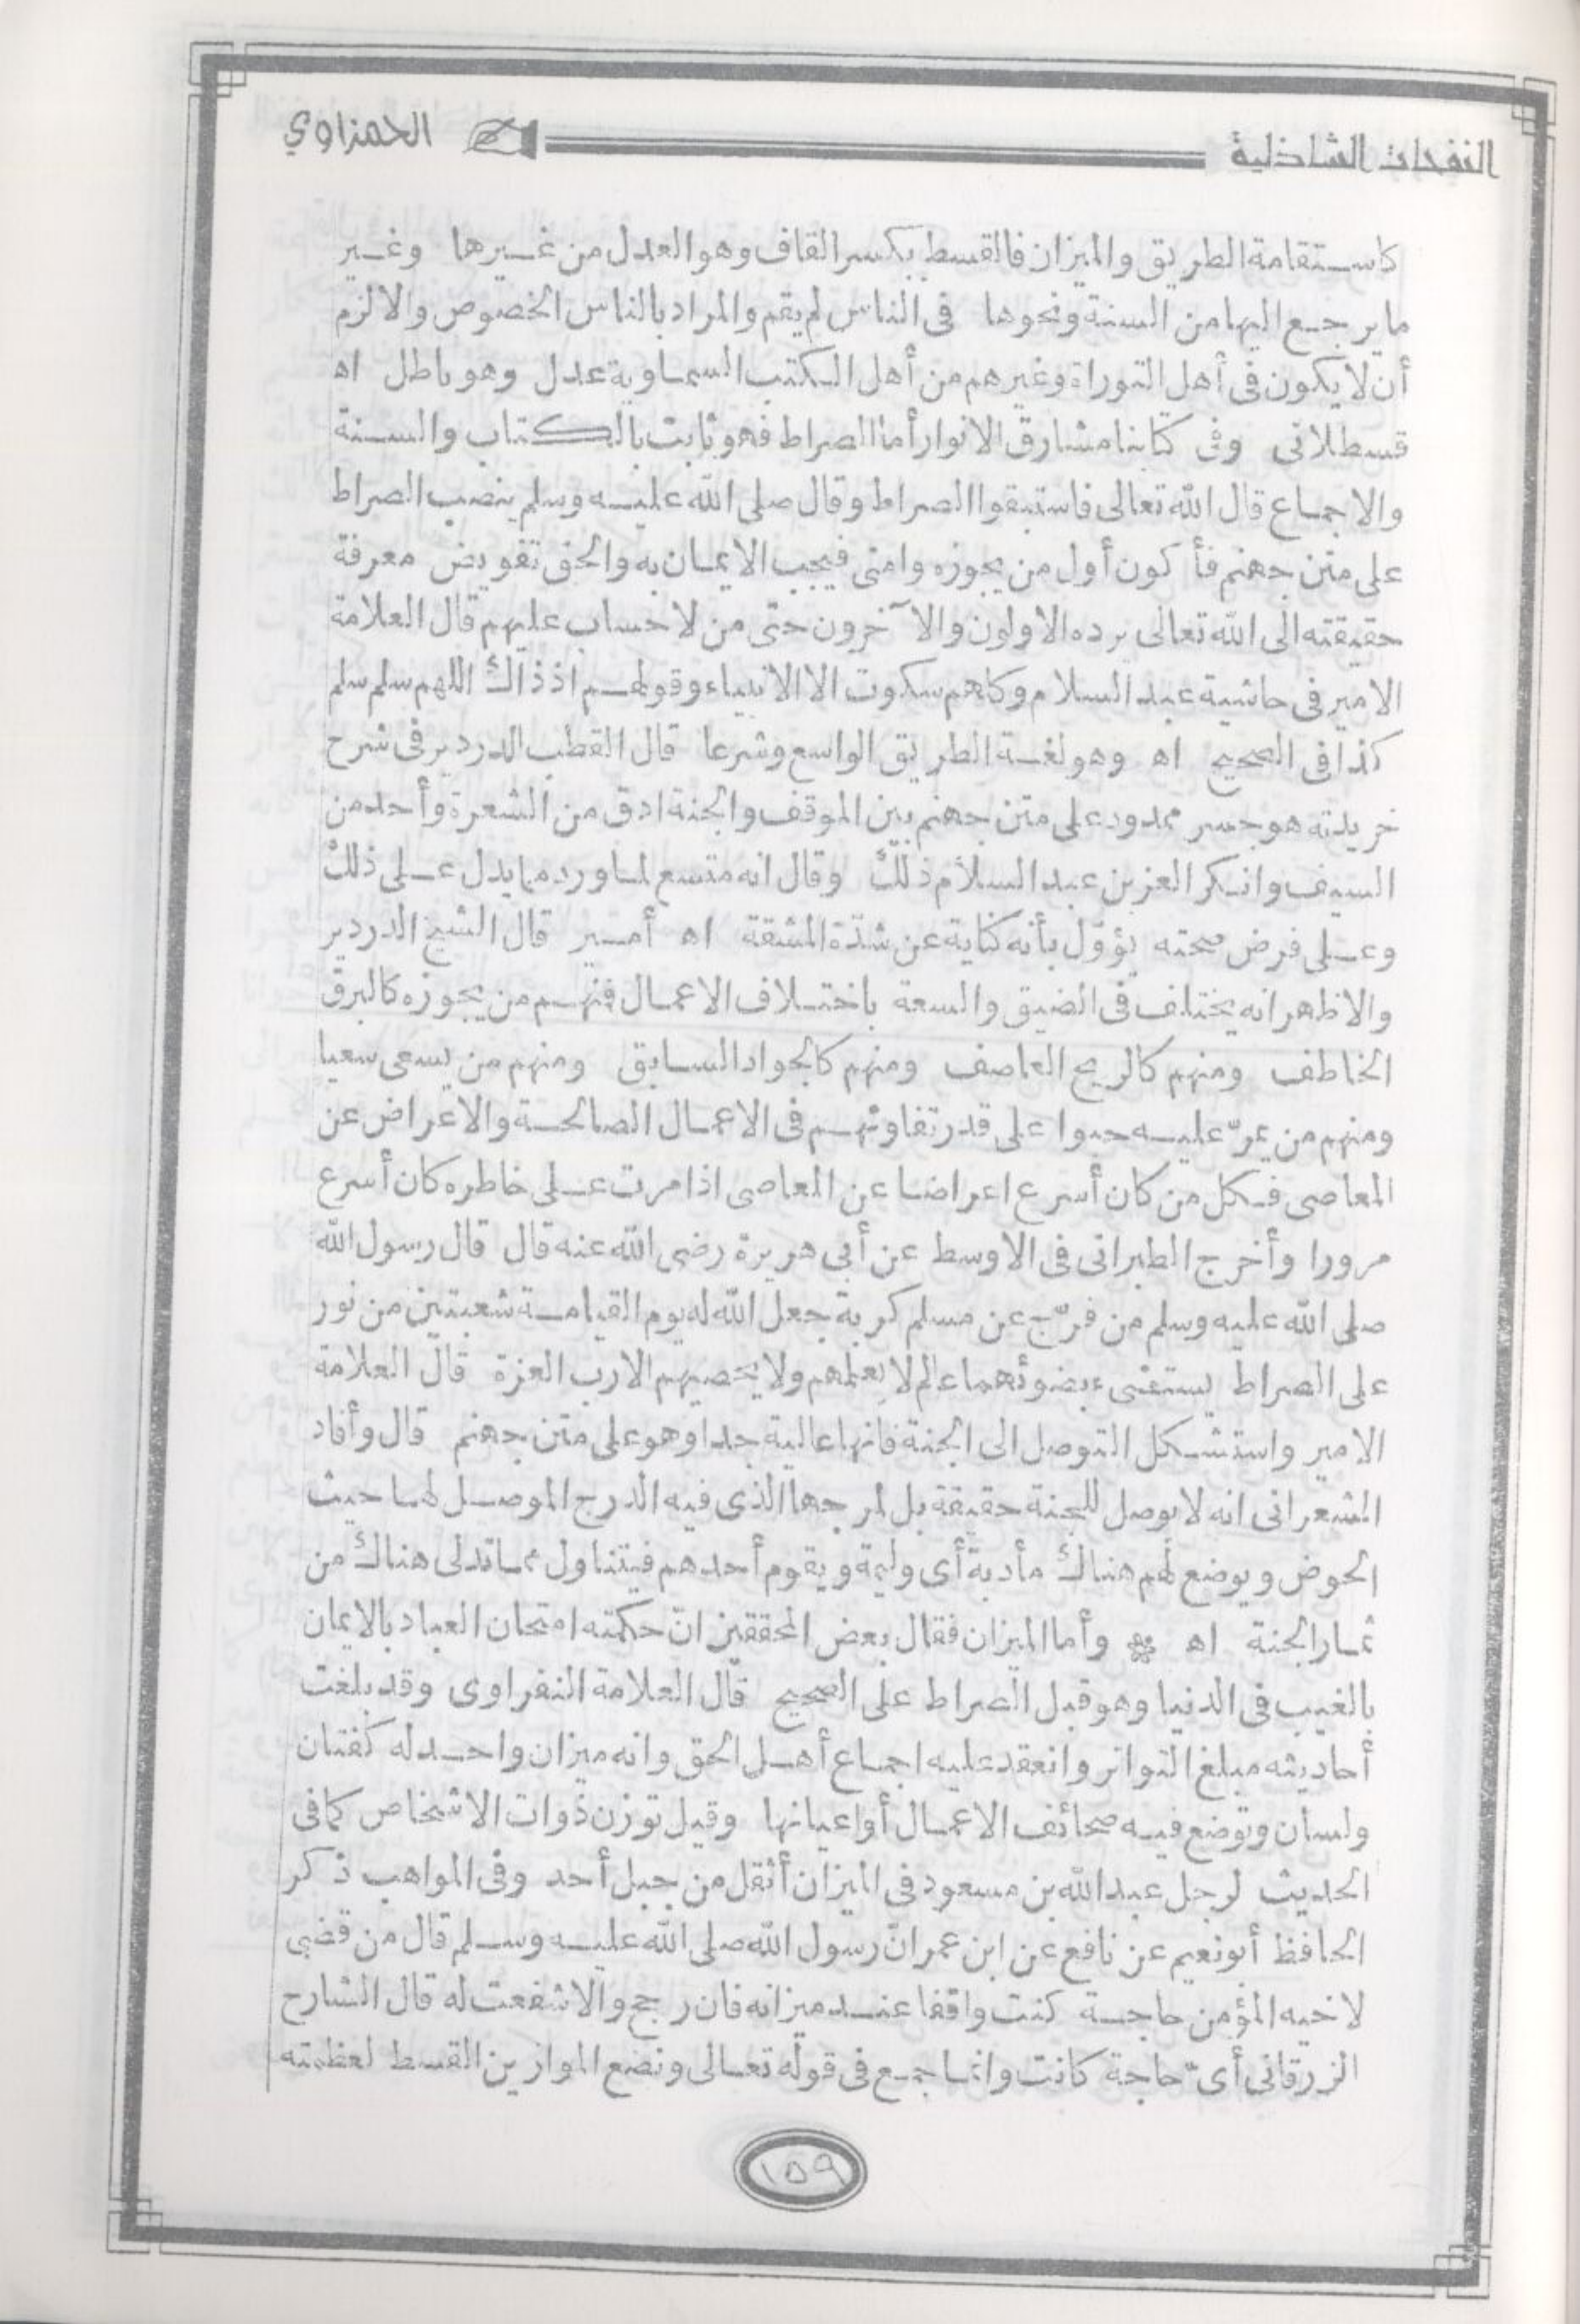 النفحات الشاذلية
الحمزاوي
كاستقامة الطريق والميزان فالقسط بكسر القاف وهو العدل من غيرها وغير
ما يرجع اليها من السنة ونحوها فى الناس لم يقم والمراد بالناس الخصوص والالزم
أن لا يكون فى أهل التوراة وغيرهم من أهل الكتب السماوية عدل وهو باطل اه
قسطلانى وفى كتابنا مشارق الانوار أما الصراط فهو ثابت بالكتاب والسنة
والاجماع قال الله تعالى فاستبقوا الصراط وقال صلى الله عليه وسلم ينصب الصراط
على متن جهنم فأكون أول من يجوزه وامتى فيجب الايمان به والحق تفويض معرفة
حقيقته الى الله تعالى يرده الاولون والآخرون حتى من لا حساب عليهم قال العلامة
الامير فى حاشية عبد السلام وكلهم سكوت الا الانبياء وقولهم اذ ذاك اللهم سلم سلم
كذا فى الصحيح اه وهو لغة الطريق الواسع وشرعا قال القطب الدردير فى شرح
خريدته هو جسر ممدود على متن جهنم بين الموقف والجنة ادق من الشعرة وأحد من
السيف وانكر العز بن عبد السلام ذلك وقال انه متسع لما ورد مما يدل على ذلك
وعلى فرض صحته يؤوّل بأنه كناية عن شدّة المشقة اه أمير قال الشيخ الدردير
والاظهر انه يختلف فى الضيق والسعة باختلاف الاعمال فمنهم من يجوزه كالبرق
الخاطف ومنهم كالريح العاصف ومنهم كالجواد السابق ومنهم من يسعى سعيا
ومنهم من يمرّ عليه حبوا على قدر تفاوتهم فى الاعمال الصالحة والاعراض عن
المعاصى فكل من كان أسرع اعراضا عن المعاصى اذا مرت على خاطره كان أسرع
مرورا وأخرج الطبرانى فى الاوسط عن أبى هريرة رضى الله عنه قال قال رسول الله
صلى الله عليه وسلم من فرّج عن مسلم كربة جعل الله له يوم القيامة شعبتين من نور
على الصراط يستضىء بضوئهما عالم لا يعلمهم ولا يحصيهم الا رب العزة قال العلامة
الامير واستشكل التوصل الى الجنة فانها عالية جدا وهو على متن جهنم قال وأفاد
الشعرانى انه لا يوصل للجنة حقيقة بل لمرجها الذى فيه الدرج الموصل لها حيث
الحوض ويوضع لهم هناك مأدبة أى وليمة ويقوم أحدهم فيتناول مما تدلى هناك من
ثمار الجنة اه * وأما الميزان فقال بعض المحققين انّ حكمته امتحان العباد بالايمان
بالغيب فى الدنيا وهو قبل الصراط على الصحيح قال العلامة النفراوى وقد بلغت
أحاديثه مبلغ التواتر وانعقد عليه اجماع أهل الحق وانه ميزان واحد له كفتان
ولسان وتوضع فيه صحائف الاعمال أو اعيانها وقيل توزن ذوات الاشخاص كما فى
الحديث لرجل عبد الله بن مسعود فى الميزان أثقل من جبل أحد وفى المواهب ذكر
الحافظ أبو نعيم عن نافع عن ابن عمر انّ رسول الله صلى الله عليه وسلم قال من قضى
لاخيه المؤمن حاجة كنت واقفا عند ميزانه فان رجح والا شفعت له قال الشارح
الزرقانى أىّ حاجة كانت وانما جمع فى قوله تعالى ونضع الموازين القسط لعظمته
١٥٩